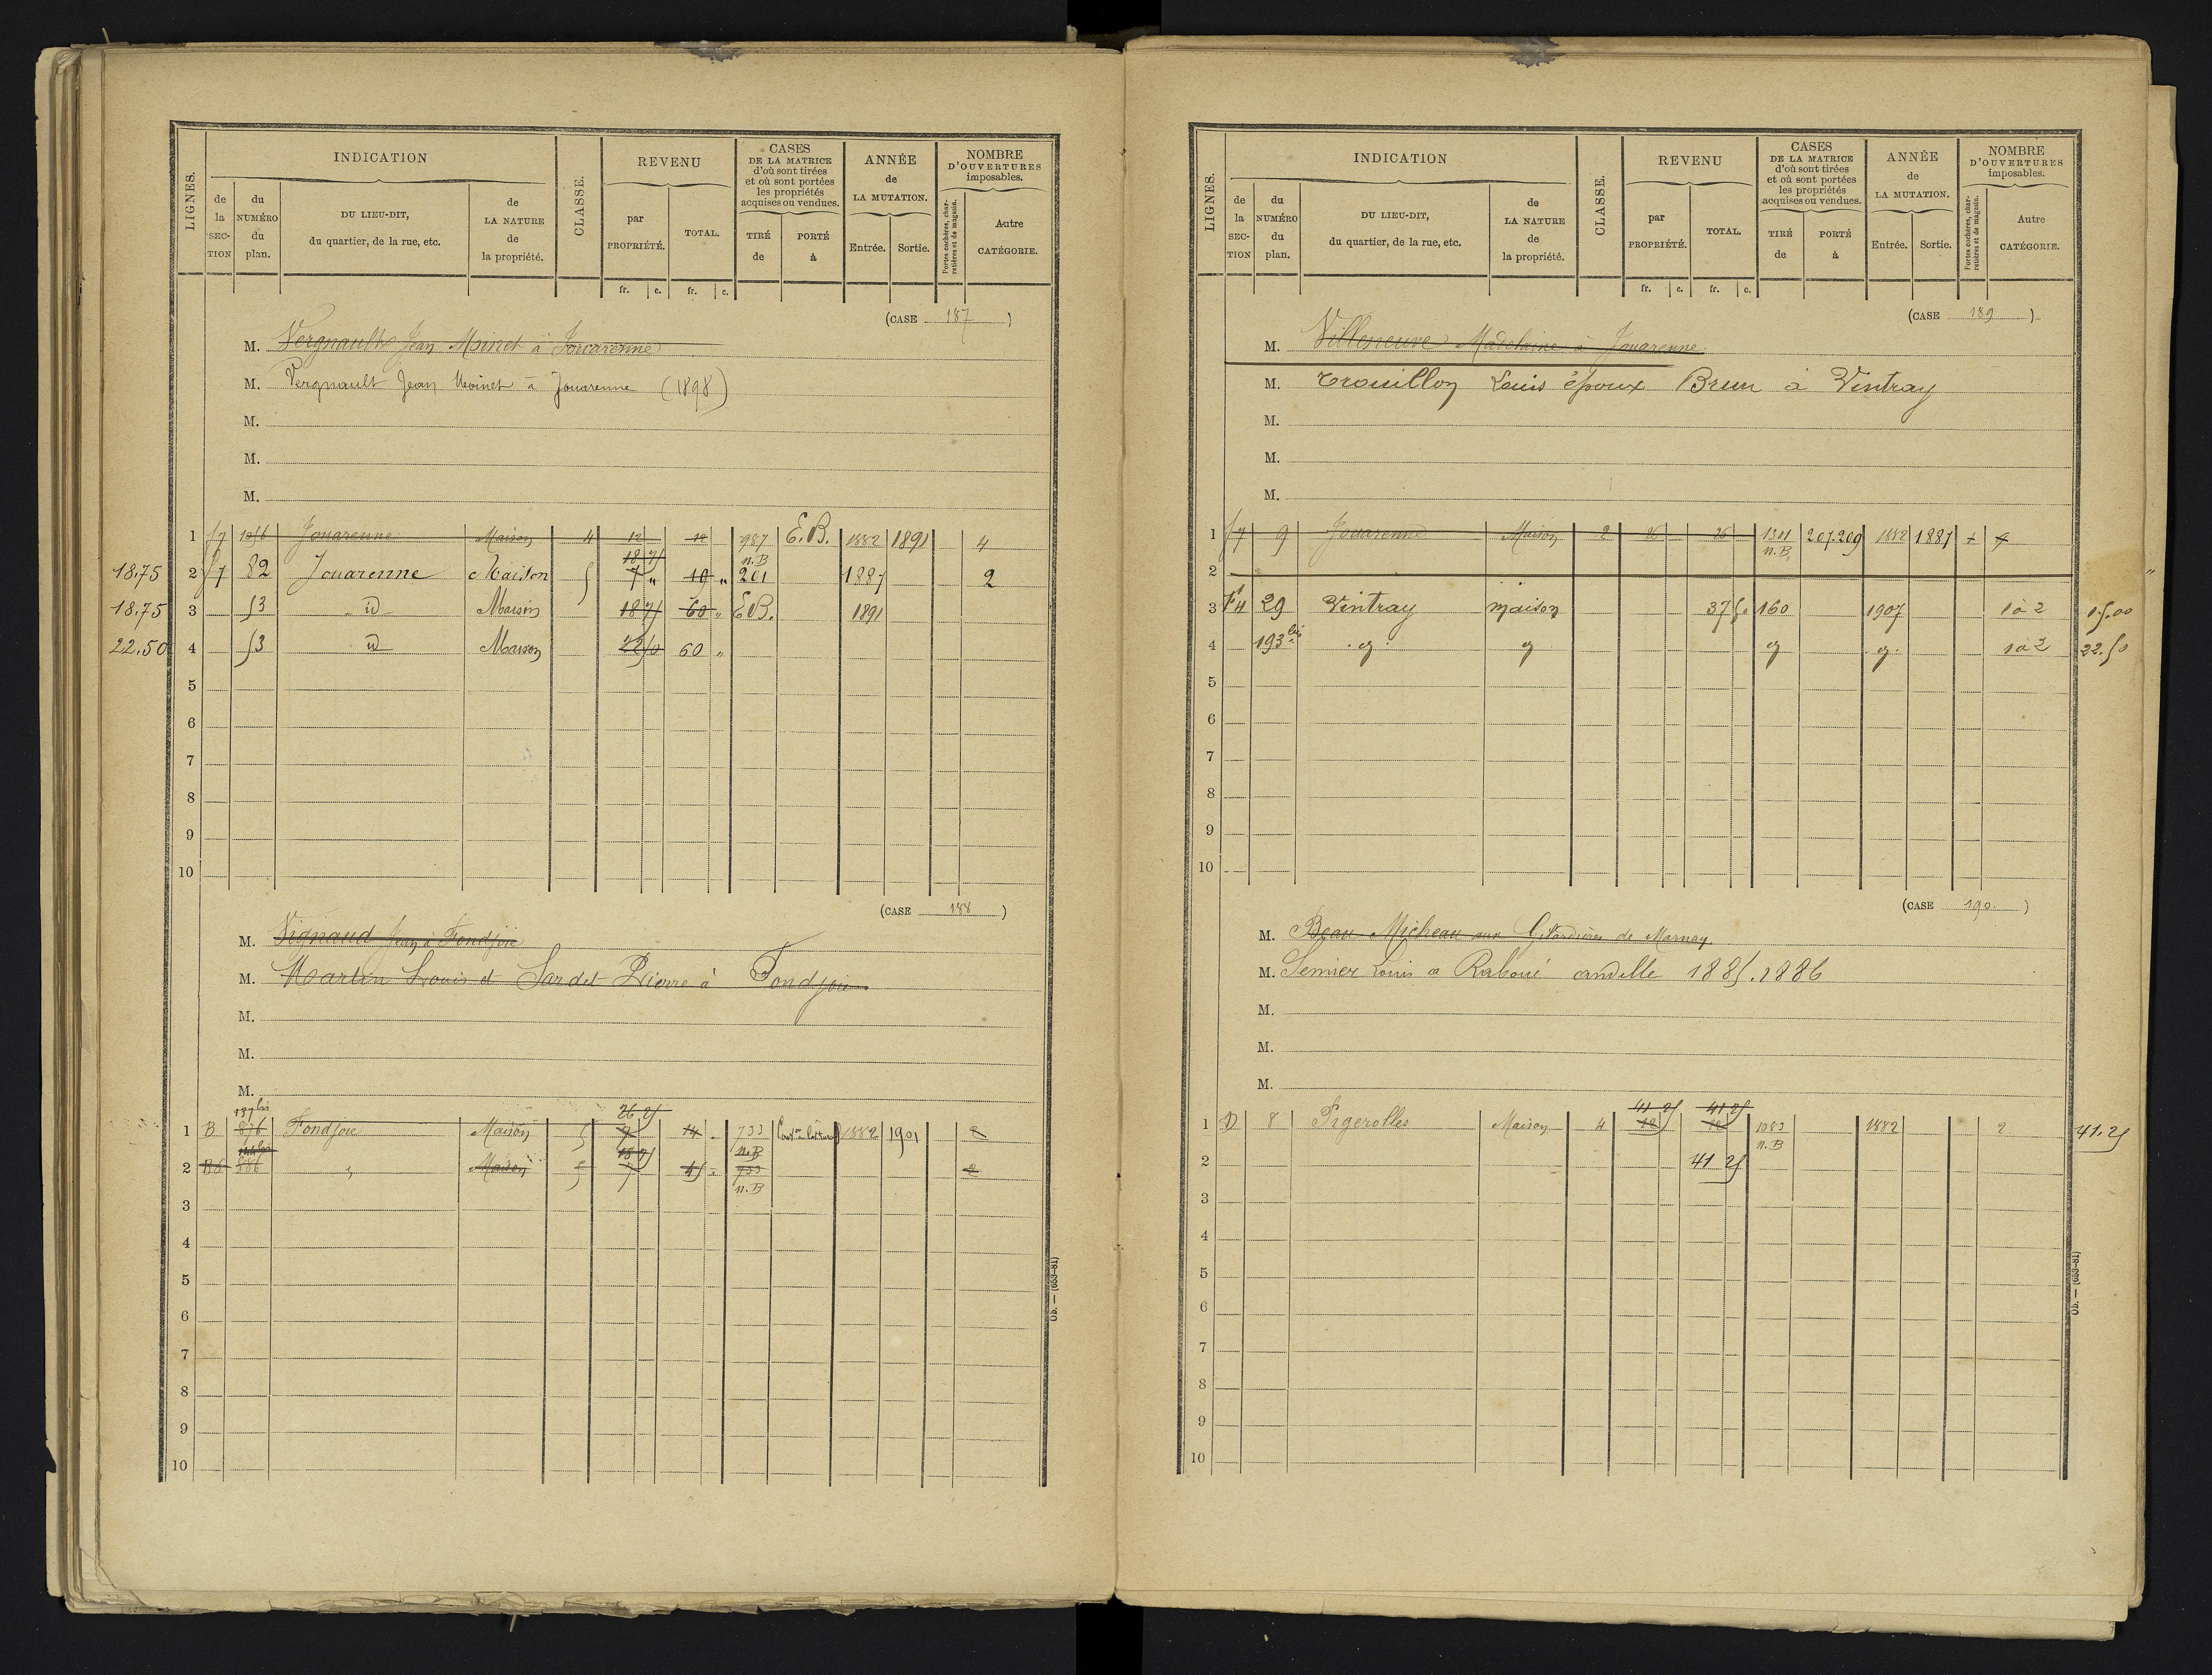 INDICATION
REVENU
CASES
DE LA MATRICE
d'où sont tirées
et où sont portées
les propriétés
acquises ou vendues.
ANNÉE
de
LA MUTATION.
NOMBRE
D'OUVERTURES
imposables.
LIGNES.
de la SECTION
du NUMÉRO du plan.
DU LIEU-DIT,
du quartier, de la rue, etc.
de LA NATURE de la propriété.
CLASSE.
par PROPRIÉTÉ.
TOTAL.
TIRÉ de
PORTÉ à
Entrée.
Sortie.
Portes cochères, charretières et de magasin.
Autre CATÉGORIE.
fr. c. fr. c.
(CASE 187)
M. Vergnault Jean Moinet à Jouarenne
M. Vergnault Jean Moinet à Jouarenne (1898)
M.
M.
M.
1 Jouarenne Maison 4 12 12 987 n.B E.B. 1882 1891 4
18.75 2 82 Jouarenne Maison 5 7 " 10 " 201 1887 2
18.75 3 53 id Maison 18 75 60 " E.B. 1891
22.50 4 53 id Maison 22 50 60 "
5
6
7
8
9
10
(CASE 188)
M. Vignaud Jean à Fondjoie
M. Martin Louis et Sardet Pierre à Fondjoie
M.
M.
M.
197 bis 26 25
1 B 876 Fondjoie Maison 5 7 14 733 n.B 1882 1901 2
2 B6 886 Maison 5 7 733 n.B 2
3
4
5
6
7
8
9
10
Ob. — (653-81)
INDICATION
REVENU
CASES
DE LA MATRICE
d'où sont tirées
et où sont portées
les propriétés
acquises ou vendues.
ANNÉE
de
LA MUTATION.
NOMBRE
D'OUVERTURES
imposables.
LIGNES.
de la SECTION
du NUMÉRO du plan.
DU LIEU-DIT,
du quartier, de la rue, etc.
de LA NATURE de la propriété.
CLASSE.
par PROPRIÉTÉ.
TOTAL.
TIRÉ de
PORTÉ à
Entrée.
Sortie.
Portes cochères, charretières et de magasin.
Autre CATÉGORIE.
fr. c. fr. c.
(CASE 189)
M. Villeneuve Madelaine à Jouarenne
M. Trouillon Louis époux Brun à Vintray
M.
M.
M.
1 9 Jouarenne Maison 2 26 26 1301 n.B 207.209 1882 1887
2
3 F4 29 Vintray maison 37 50 160 1907 1 à 2 15.00
4 193 bis 1 à 2 22.50
5
6
7
8
9
10
(CASE 190)
M. Beau Micheau aux de Marnay
M. Semier Louis a Raboué andille 1885.1886
M.
M.
M.
41 25 41 25
1 D 8 Pigerolles Maison 4 12 12 1083 n.B 1882 2 41.25
2 41 25
3
4
5
6
7
8
9
10
Ob. — (653-81)